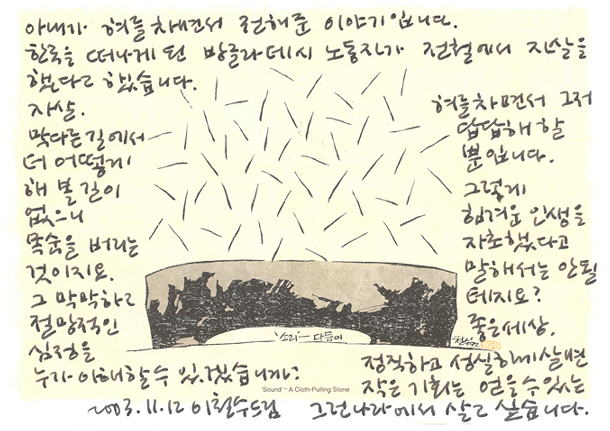 아내가 혀를 차면서 전해준 이야기입니다.
한국을 떠나게 된 방글라데시 노동자가 전철에서 자살을
했다고 했습니다.
자살.
막다른 길에서
더 어떻게
해 볼 길이
없으니
목숨을 버리는
것이지요.
그 막막하고
절망적인
심정을
누가 이해할 수 있겠습니까?
2003.11.12 이철수 드림
혀를 차면서 그저
답답해 할
뿐입니다.
그렇게
힘겨운 인생을
자초했다고
말해서는 안될
테지요?
좋은세상.
정직하고 성실하게 살면
작은 기회는 얻을 수 있는
그런 나라에서 살고 싶습니다.
'소리' - 다듬이
'Sound' - A Cloth-Pulling Stone